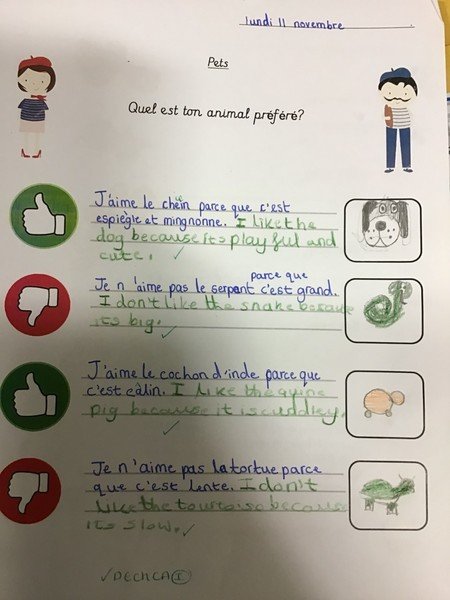 lundi 11 novembre
Pets
Quel est ton animal préféré?
J'aime le chein parce que c'est
espiègle et mingnonne. I like the
dog because its playful and
cute.
parce que
Je n'aime pas le serpant c'est grand.
I don't like the snake becase
its big.
J'aime le cochon d'inde parce que
c'est câlin. I like the guine
pig because it is cuddley.
Je n'aime pas la tortue parce
que c'est lente. I don't
like the tourtoise because
its slow.